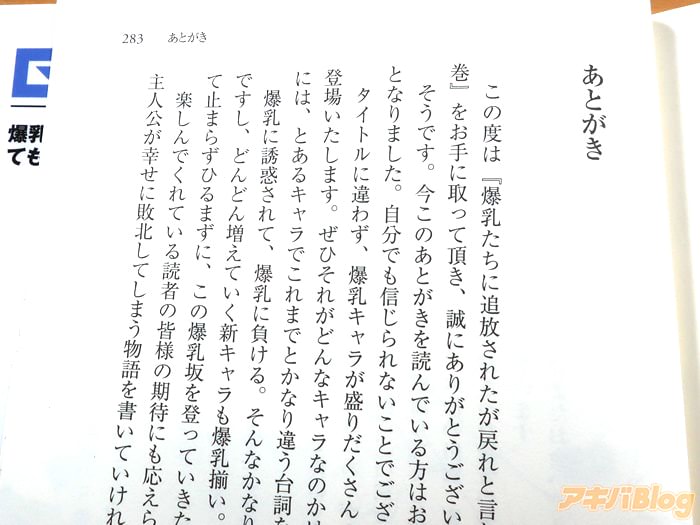 283　あとがき
あとがき
この度は『爆乳たちに追放されたが戻れと言
巻』をお手に取って頂き、誠にありがとうござい
そうです。今このあとがきを読んでいる方はお
となりました。自分でも信じられないことでござ
タイトルに違わず、爆乳キャラが盛りだくさん
登場いたします。ぜひそれがどんなキャラなのか
には、とあるキャラでこれまでとかなり違う台詞
爆乳に誘惑されて、爆乳に負ける。そんなかなり
ですし、どんどん増えていく新キャラも爆乳揃い。
て止まらずひるまずに、この爆乳坂を登っていきた
楽しんでくれている読者の皆様の期待にも応えら
主人公が幸せに敗北してしまう物語を書いていけれ
爆乳
ても
アキバBlog